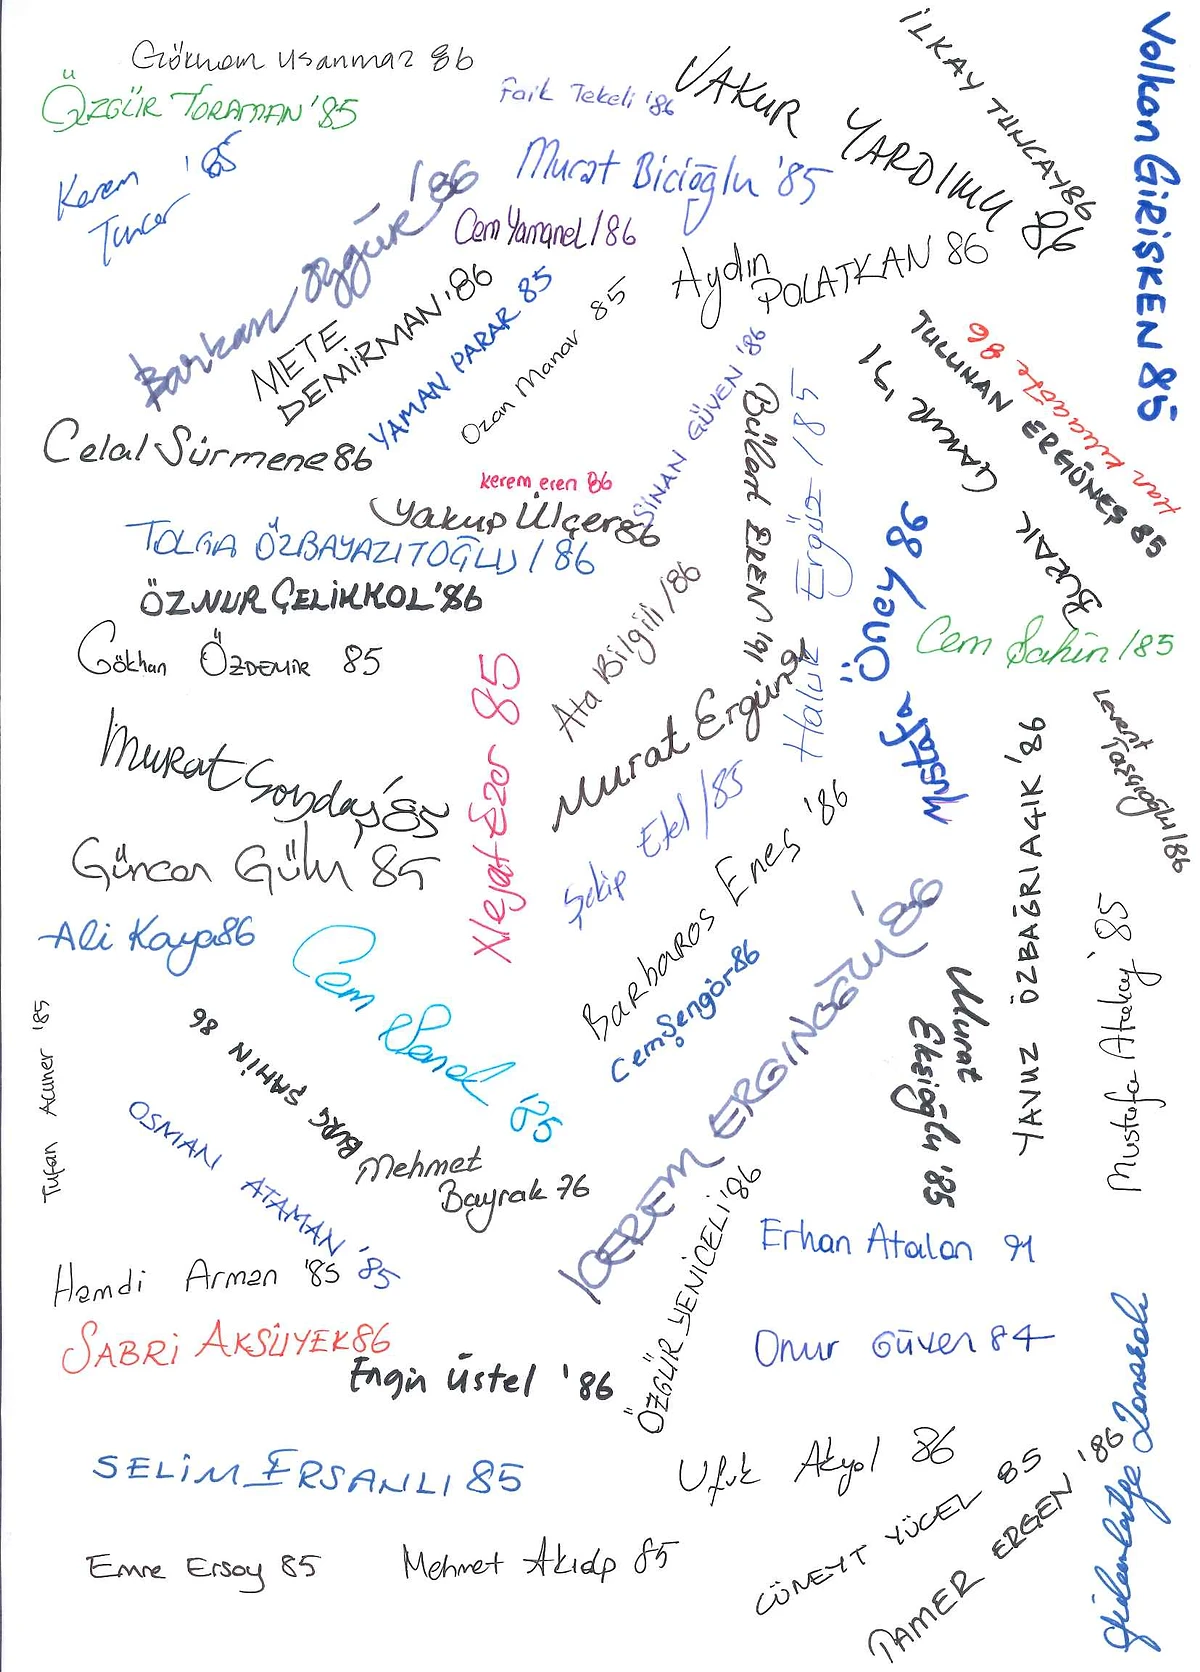 Gökhan Usanmaz 86
ÖZGÜR TORAMAN '85
Faik Tekeli '86
VAKUR YARDIMCI 86
İLKAY TUNCAY 86
Volkan GİRİŞKEN 85
Kerem Tuncer '85
Murat Bicioğlu '85
Barkan Özgür '86
Cem Yamanel / 86
Aydın POLATKAN 86
METE
DEMİRMAN '86
YAMAN PARAR 85
Ozan Manav 85
SİNAN GÜVEN '86
Bülent EREN '91
Haluk Ergüz / 85
BURAK ÇAKUR '91
TULUHAN ERGÜNEŞ 85
Celal Sürmene 86
kerem eren 86
Yakup Ülçer 86
TOLGA ÖZBAYAZITOĞLU / 86
ÖZNUR ÇELİKKOL '86
Gökhan ÖZDEMİR 85
Ata Bilgili / 86
Mustafa Önay 86
Cem Şahin / 85
Nejat Ezer 85
Murat Ergüner
Levent
Taşçıoğlu / 86
Murat Soydaş '85
Şekip Etel / 85
Barbaros Enes '86
YAVUZ ÖZBAĞRIAÇIK '86
Güncan Gülü '85
Ali Kaya 86
Cem Şenol '85
Cem Şengör 86
KEREM ERGİNOĞLU '86
Murat
Ekşioğlu '85
Mustafa Atakay '85
Tufan Acuner '85
BURÇ ŞAHİN 86
OSMAN ATAMAN '85
Mehmet
Bayrak 76
ÖZGÜR YENİCELİ '86
Erhan Atalan 91
Hamdi Arman '85
SABRİ AKSÜYEK 86
Engin Üstel '86
Onur Güven 84
SELİM ERSANLI 85
Ufuk Akyol 86
CÜNEYT YÜCEL 85
TAMER ERGEN '86
Emre Ersoy 85
Mehmet Akıalp 85